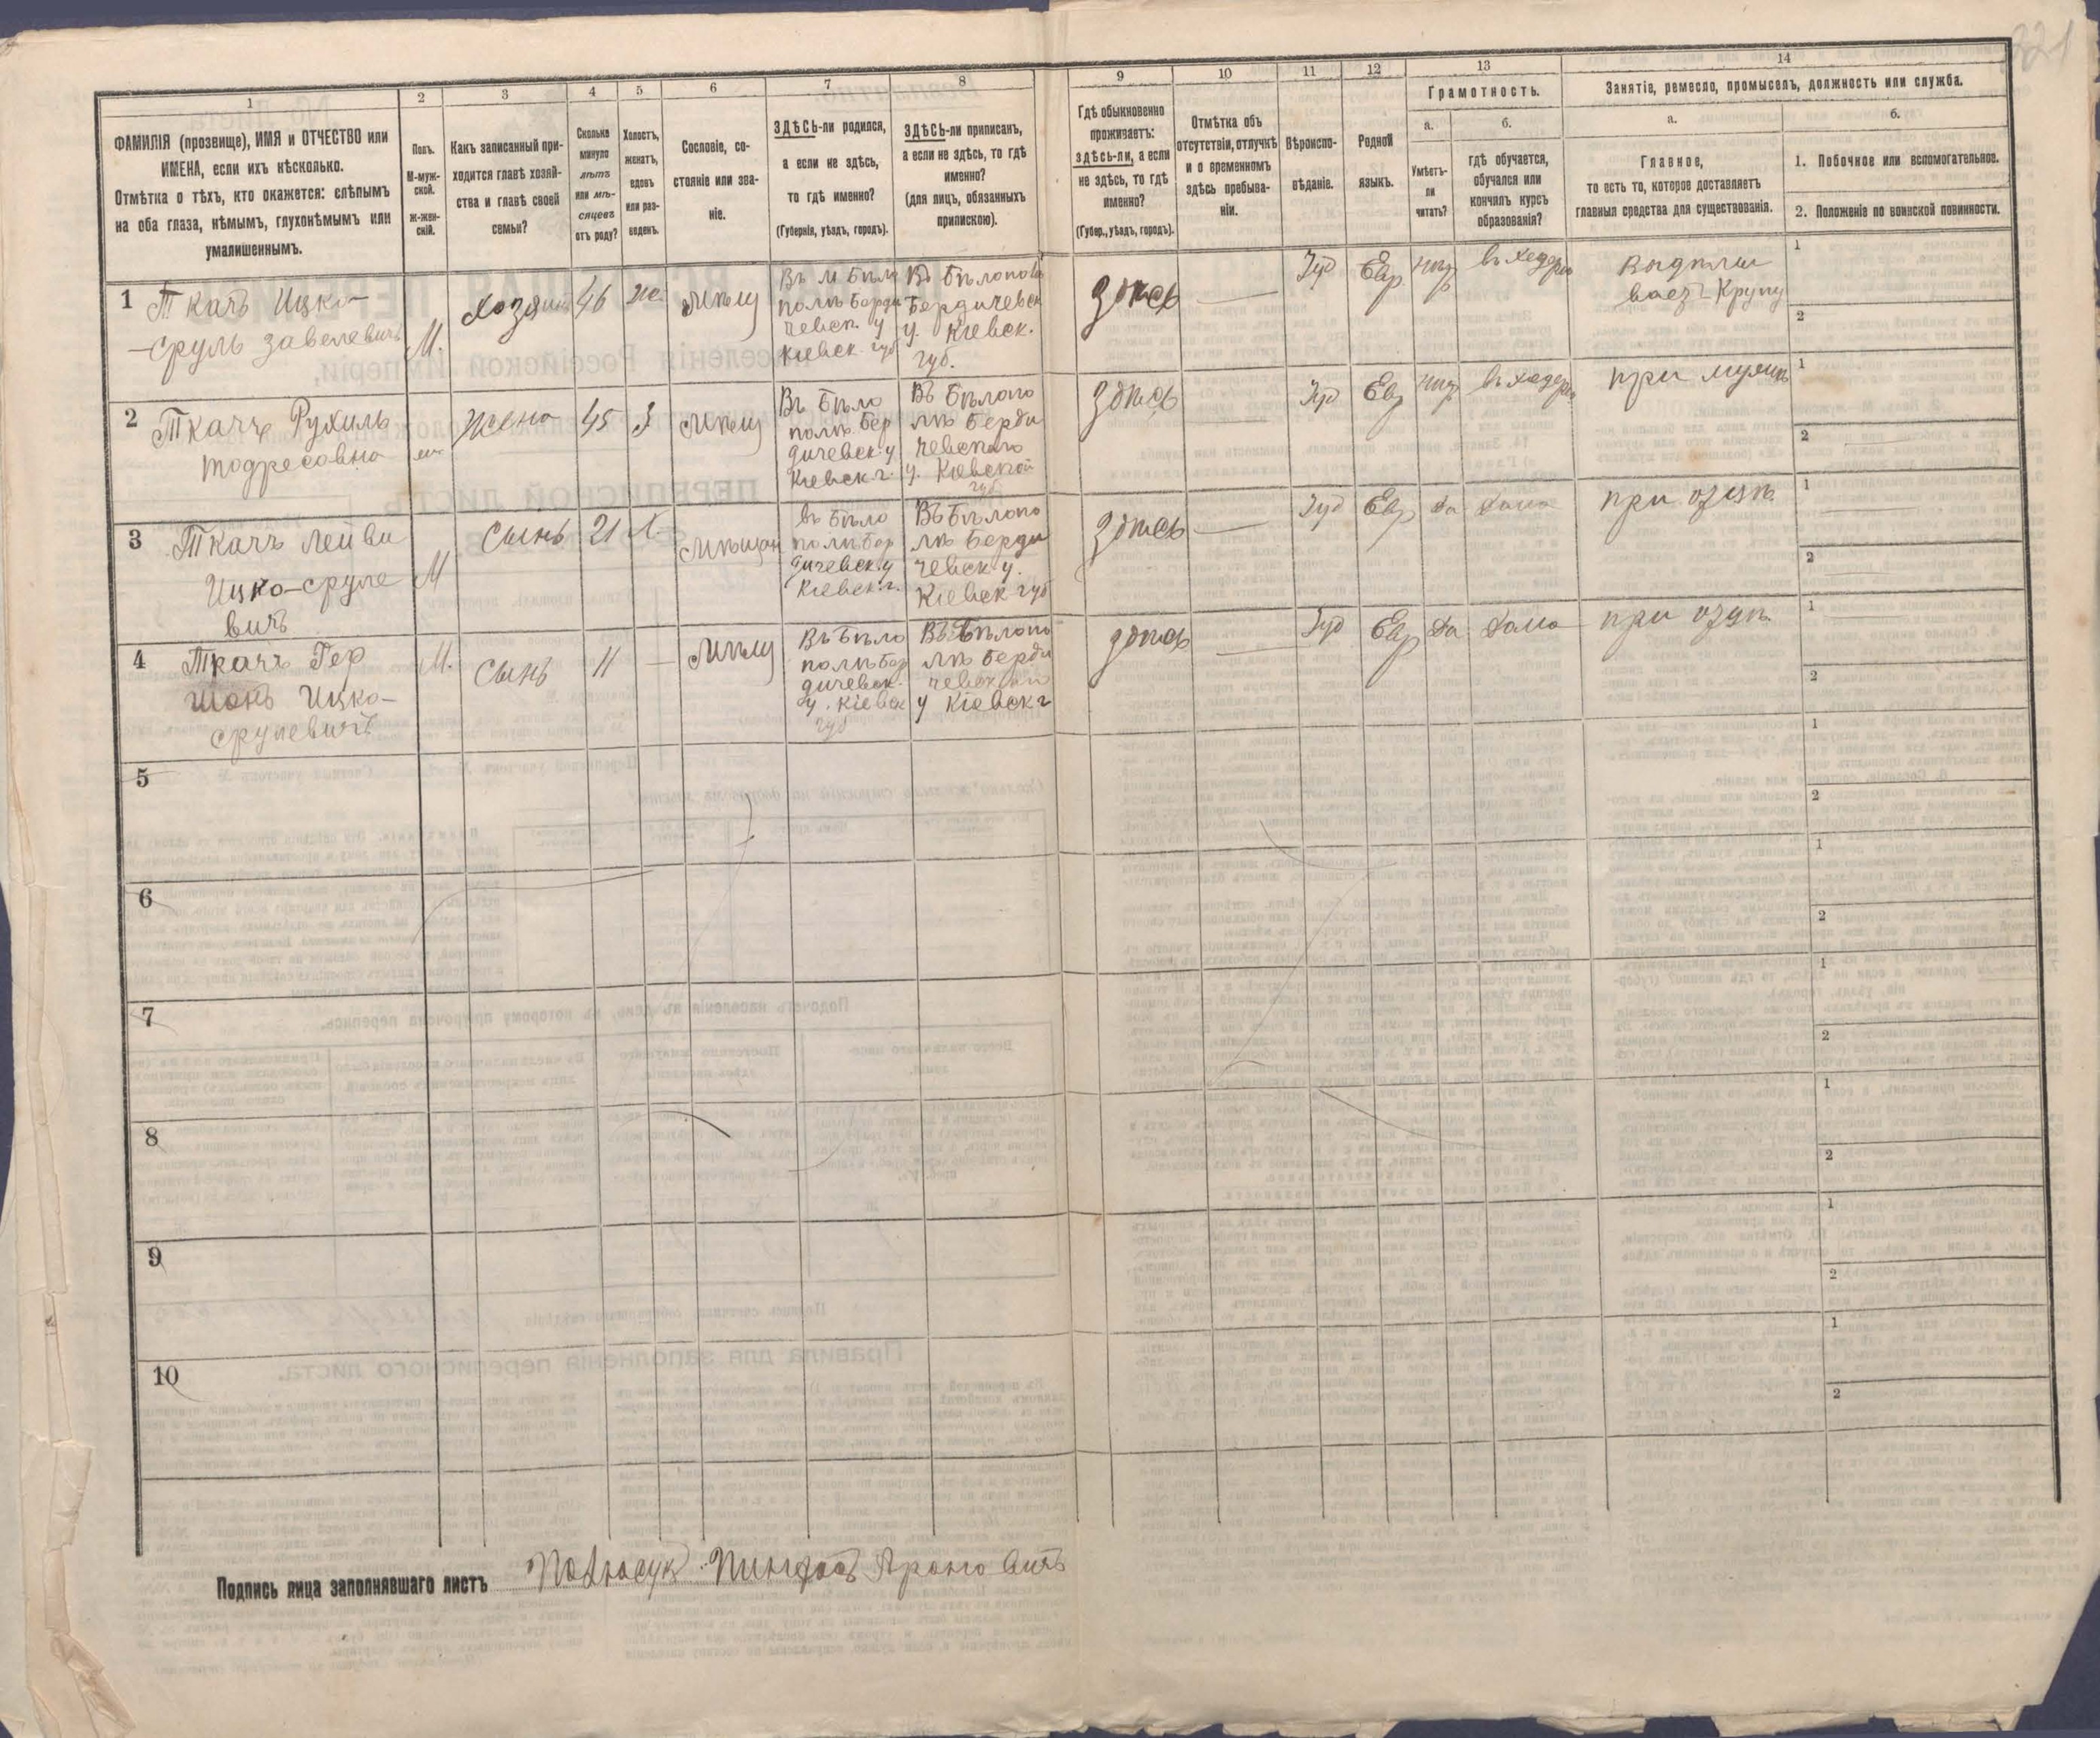 221
1
2
3
4
5
6
7
8
9
10
11
12
13
14
ФАМИЛІЯ (прозвище), ИМЯ и ОТЧЕСТВО или
ИМЕНА, если ихъ нѣсколько.
Отмѣтка о тѣхъ, кто окажется: слѣпымъ
на оба глаза, нѣмымъ, глухонѣмымъ или
умалишеннымъ.
Полъ.
М-муж-
ской.
Ж-жен-
скій.
Какъ записанный при-
ходится главѣ хозяй-
ства и главѣ своей
семьи?
Сколько
минуло
лѣтъ
или мѣ-
сяцевъ
отъ роду?
Холостъ,
женатъ,
вдовъ
или раз-
веденъ.
Сословіе, со-
стояніе или зва-
ніе.
ЗДѢСЬ-ли родился,
а если не здѣсь,
то гдѣ именно?
(Губернія, уѣздъ, городъ).
ЗДѢСЬ-ли приписанъ,
а если не здѣсь, то гдѣ
именно?
(для лицъ, обязанныхъ
припискою).
Гдѣ обыкновенно
проживаетъ:
здѣсь-ли, а если
не здѣсь, то гдѣ
именно?
(Губер., уѣздъ, городъ).
Отмѣтка объ
отсутствіи, отлучкѣ
и о временномъ
здѣсь пребыва-
ніи.
Вѣроиспо-
вѣданіе.
Родной
языкъ.
Грамотность.
а.
Умѣетъ-
ли
читать?
б.
гдѣ обучается,
обучался или
кончилъ курсъ
образованія?
Занятіе, ремесло, промыселъ, должность или служба.
а.
Главное,
то есть то, которое доставляетъ
главныя средства для существованія.
б.
1. Побочное или вспомогательное.
2. Положеніе по воинской повинности.
1
Ткачъ Ицко-
-сруль Завелевичъ
М.
Хозяинъ
46
же.
мѣщ
Въ м Бѣло
полѣ Берди
чевск. у
Кіевск. губ
Въ Бѣлополѣ
Бердичевск
у. Кіевск.
губ.
здѣсь
Іуд
Евр
въ хедерѣ
Крупу
1
2
2
Ткачъ Рухиль
Тодресовна
жена
45
З
мѣщ
Въ Бѣло
полѣ Бер
дичевск. у
Кіевск. г.
Въ Бѣлопо
лѣ Берди
чевскаго
у. Кіевской
губ
здѣсь
Іуд
Евр
въ хедерѣ
при мужѣ
1
2
3
Ткачъ Лейви
Ицко-сруле
вичъ
М
сынъ
21
Х.
мѣщан
въ Бѣло
полѣ Бер
дичевск. у
Кіевск. г.
Въ Бѣлопо
лѣ Берди
чевск у.
Кіевск губ
здѣсь
Іуд
Евр
да
дома
при отцѣ
1
2
4
Ткачъ Гер
шонъ Ицко-
срулевичъ
М.
сынъ
11
мѣщ
Въ Бѣло
полѣ Бер
дичевск.
у. Кіевск
губ
Въ Бѣлопо
лѣ Берди
чевскаго
у Кіевск г
здѣсь
Іуд
Евр
да
дома
при отцѣ
1
2
5
1
2
6
1
2
7
1
2
8
1
2
9
1
2
10
1
2
Подпись лица заполнявшаго листъ